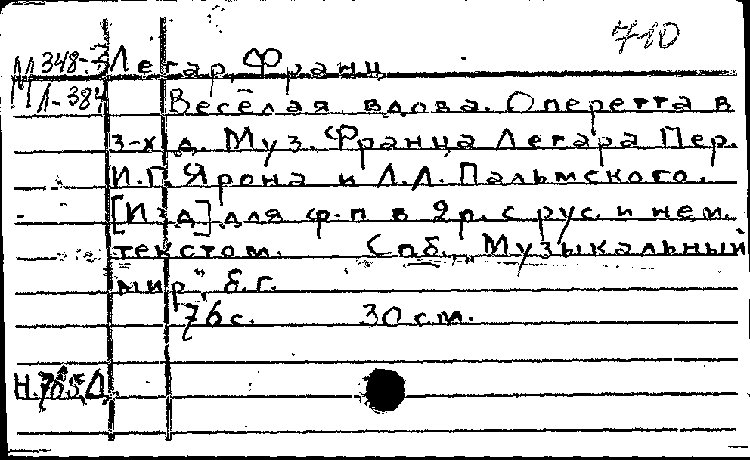 710
М 348-3 Легар, Франц
Л-384 Весёлая вдова. Оперетта в
3-х д. Муз. Франца Легара Пер.
И.Г. Ярона и Л.Л. Пальмского.
[Изд] для ф-п в 2 р. с рус. и нем.
текстом. Спб., "Музыкальный
мир", б.г.
76 с. 30 см.
Н.